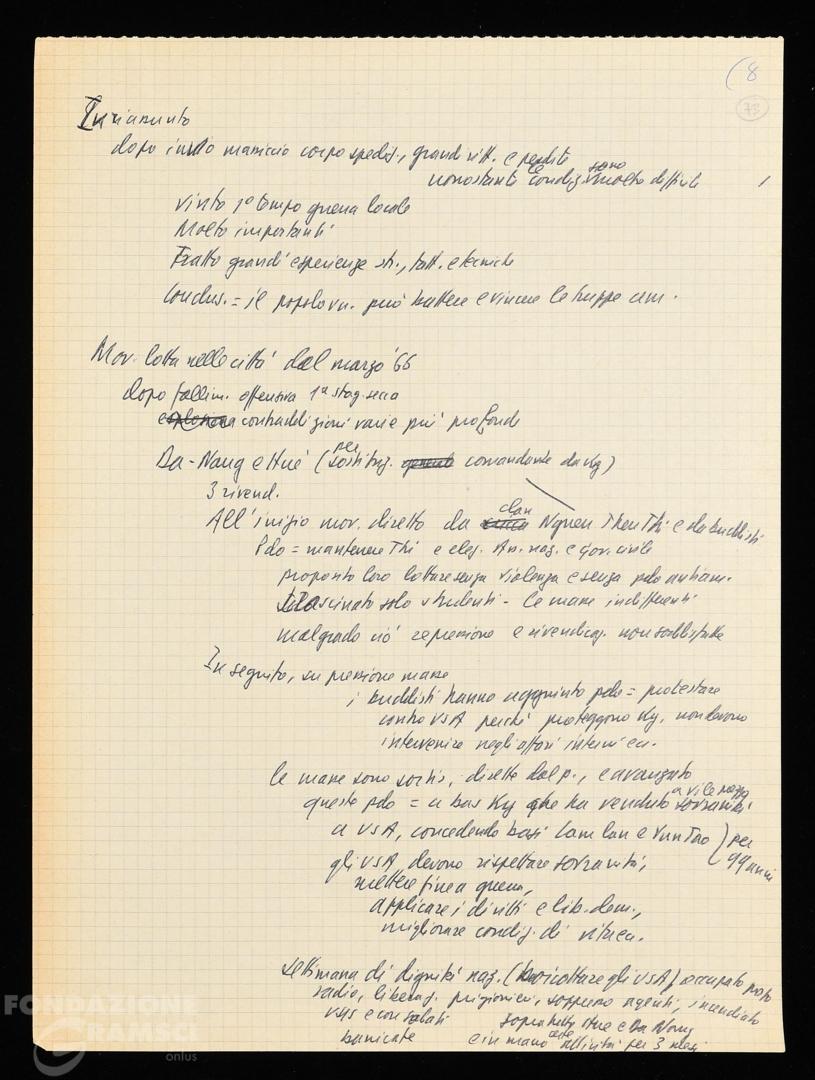 (8
73
Inviamento
dopo invio massiccio corpo spediz., grandi vitt. e perdite
nonostante le condiz. sono molto difficili
vinto 1° tempo guerra locale
Molto importanti
Tratto grandi esperienze str., tatt. e tecniche
Conclus. = il popolo vn. può battere e vincere le truppe am.
Mov. lotta nelle città dal marzo '66
dopo fallim. offensiva 1ª stag. secca
contraddizioni varie più profonde
Da-Nang e Hué (per sostituz. comandante da Ky)
3 rivend.
All'inizio mov. diretto da clan Nguen Then Thi e da buddisti
Pdo = mantenere Thi e elez. As. naz. e gov. civile
proposto loro lottare senza violenza e senza pdo antiam.
trascinato solo studenti - le masse indifferenti
malgrado ciò repressione e rivendicaz. non soddisfatte
In seguito, su pressione masse
i buddisti hanno aggiunto pdo = protestare
contro USA perché proteggono Ky, non devono
intervenire negli affari interni ecc.
le masse sono sortis, dirette dal p., e avanzato
questo pdo = a bas Ky che ha venduto a vile prezzo sovranità
a USA, concedendo basi Cam Lan e Vun Tao ) per 99 anni
gli USA devono rispettare sovranità,
mettere fine a guerra,
applicare i diritti e lib. dem.,
migliorare condiz. di vita ecc.
Settimana di dignità naz. (boicottare gli USA) occupato posto
radio, liberaz. prigionieri, soppresso agenti, incendiato
USIS e consolati soprattutto Hue e Da Nang
barricate e in mano città per 3 mesi
FONDAZIONE
GRAMSCI
onlus